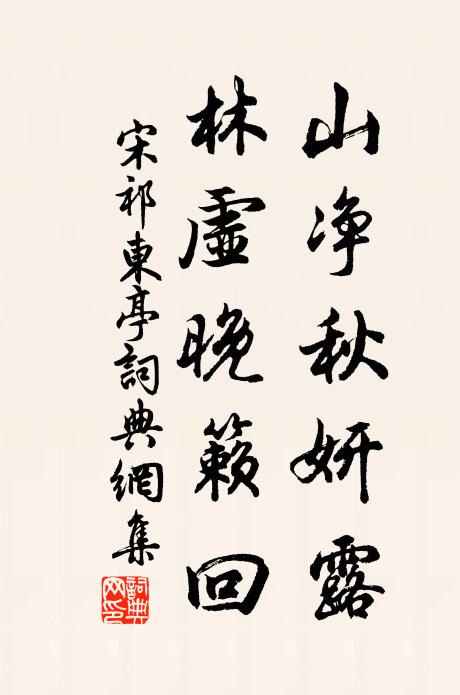 山净秋妍露
林虛晚籟回
宋祁東亭詞典網集
詞典網印